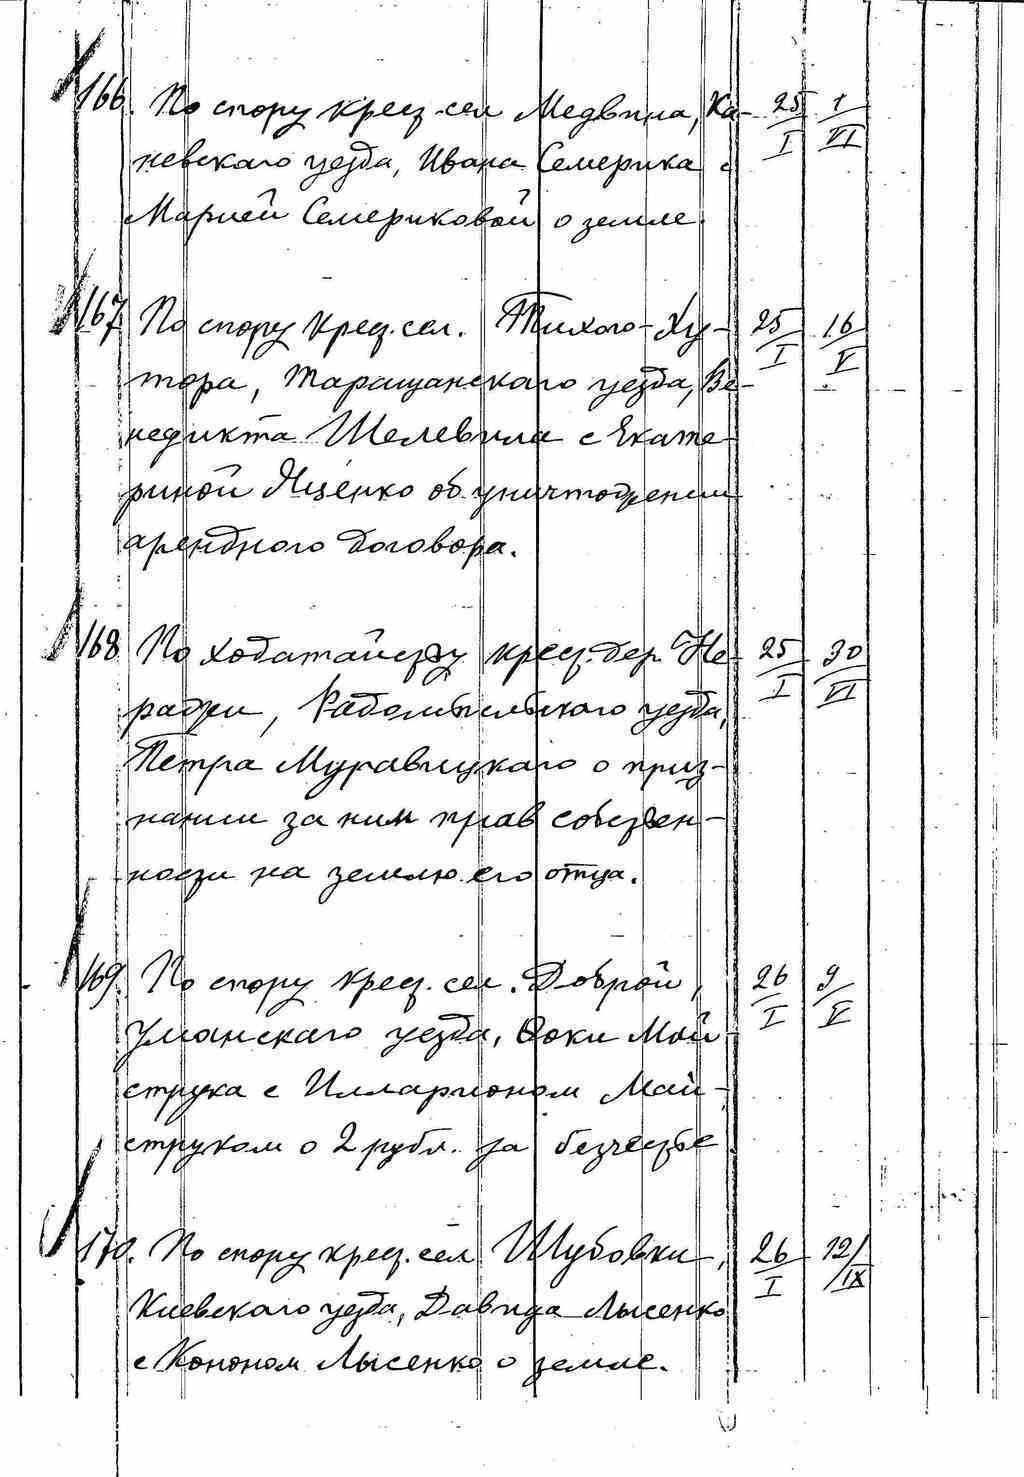 166. По спору крест. сел Медвина, Ка- 25/I 1/VI
невскаго уезда, Ивана Семерика с
Марией Семериковой о земле.
167 По спору крест. сел. Тихого-Ху- 25/I 16/V
тора, Таращанскаго уезда, Ве-
недикта Шелевила с Екате-
риной Яценко об уничтожении
арендного договора.
168 По ходатайству крест. дер. Не- 25/I 30/VI
ражи, Радомысльского уезда,
Петра Муравицкаго о приз-
нании за ним прав собствен-
ности на землю его отца.
169. По спору крест. сел. Доброй, 26/I 9/V
Уманскаго уезда, Фоки Май-
струка с Илларионом Май-
струком о 2 рубл. за безчестье
170. По спору крест. сел Шубовки, 26/I 12/IX
Киевскаго уезда, Давида Лысенко
с Кононом Лысенко о земле.